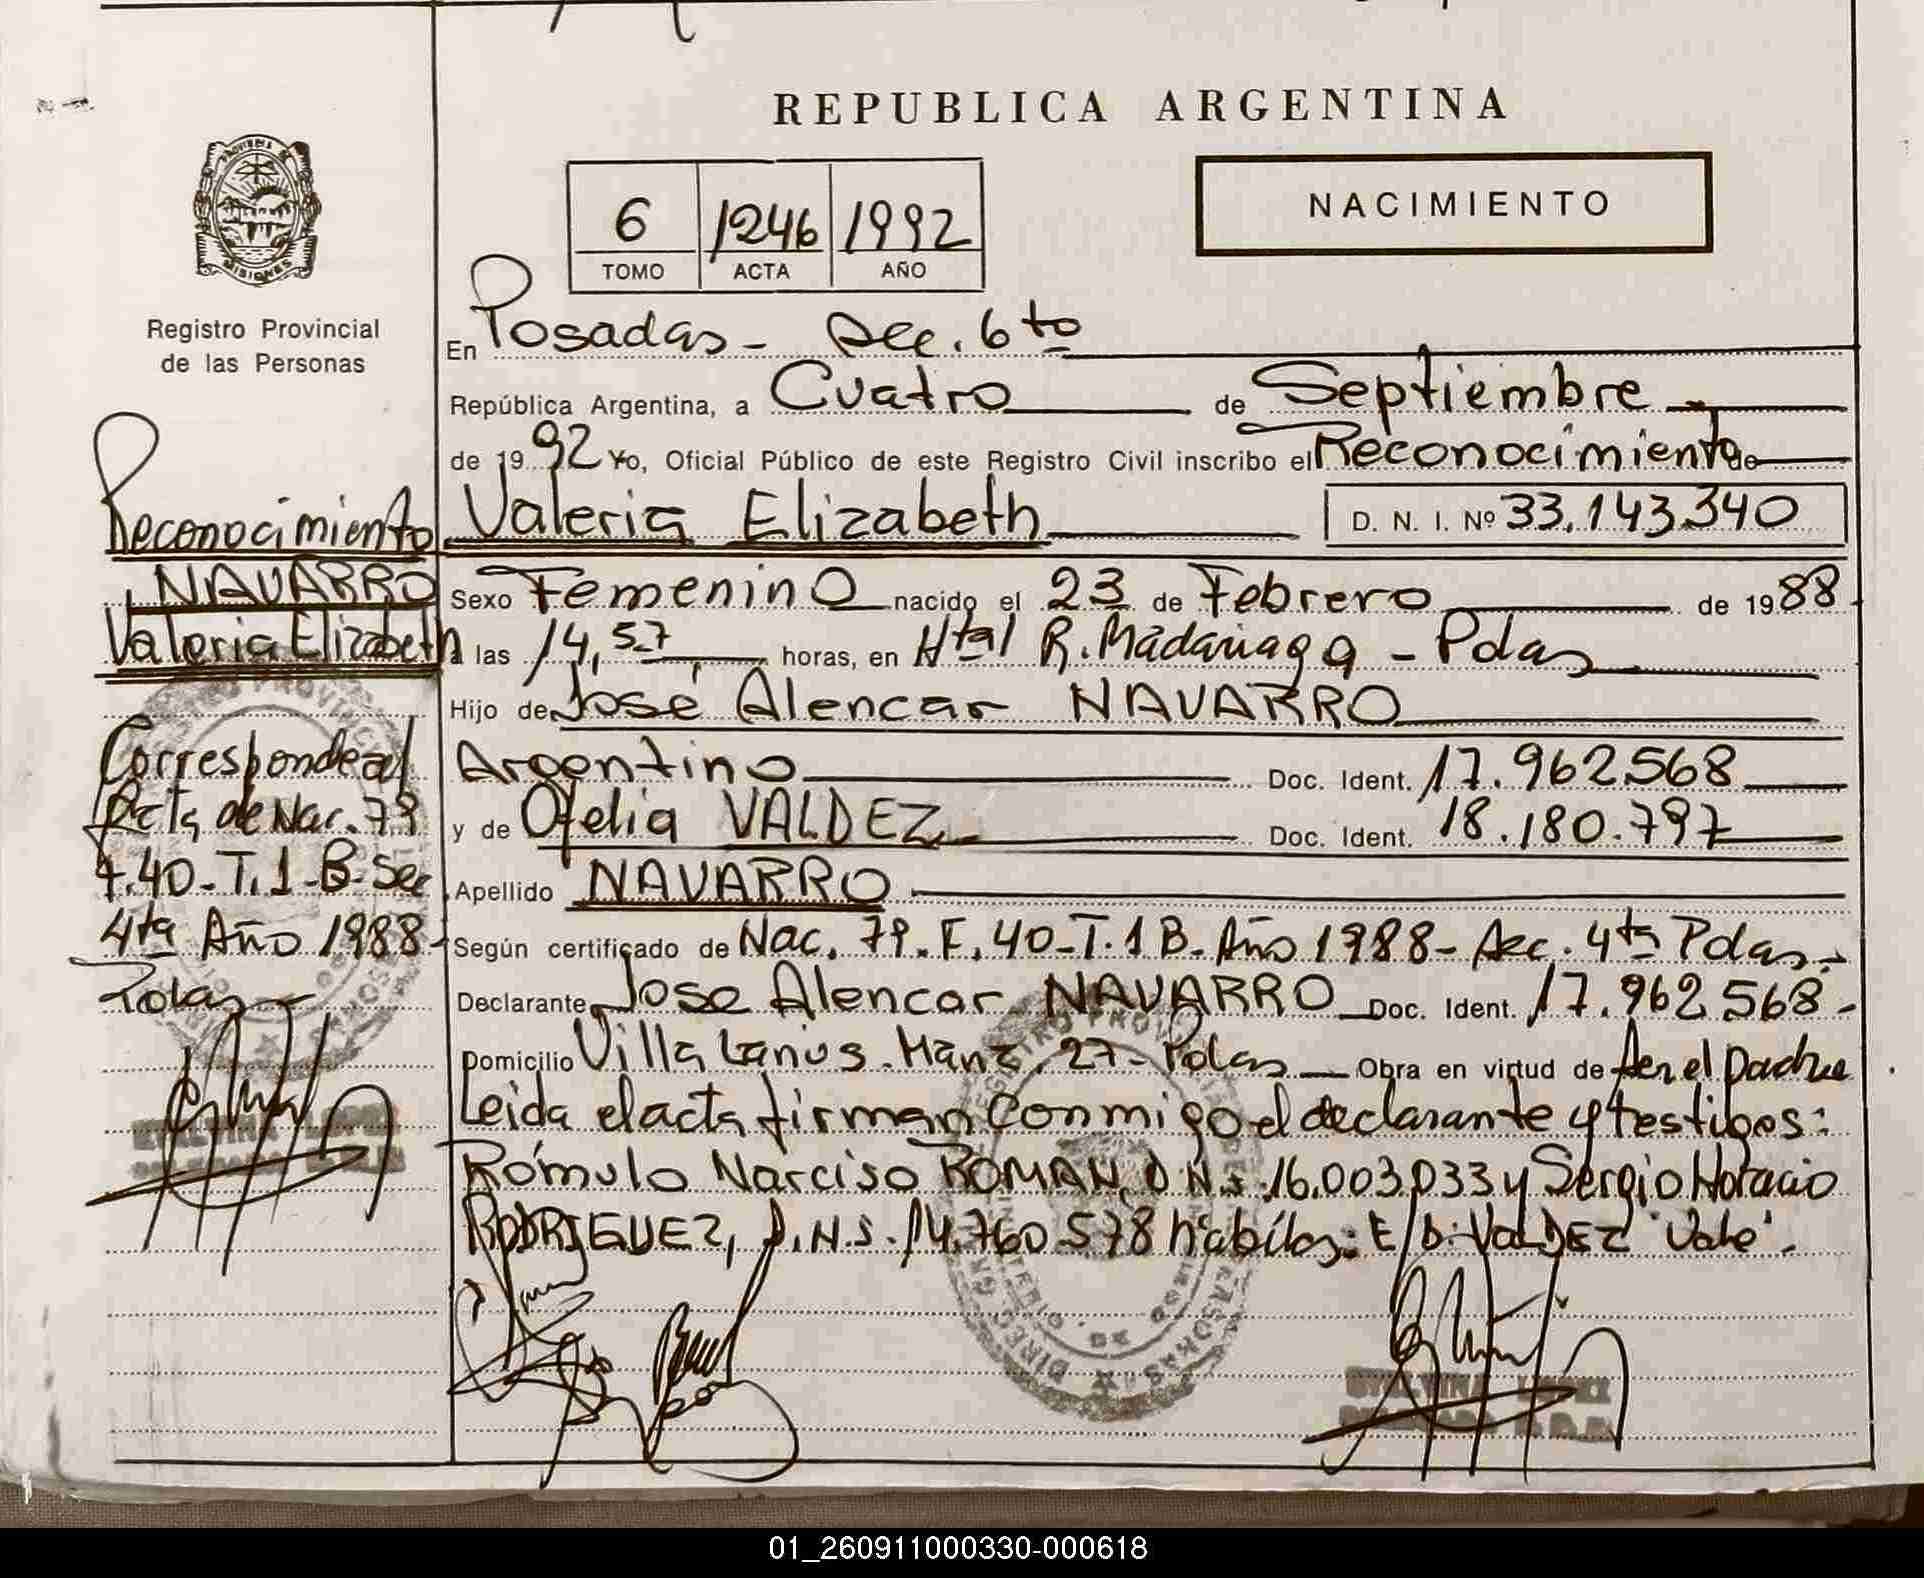 REPUBLICA ARGENTINA
NACIMIENTO
6 1246 1992
TOMO ACTA AÑO
PROVINCIA DE
MISIONES
Registro Provincial
de las Personas
Reconocimiento
NAVARRO
Valeria Elizabeth
Corresponde al
Acta de Nac. 79
F.40-T.1-B-Sec
4ta Año 1988-
Pdas
En Posadas - Sec. 6to
República Argentina, a Cuatro de Septiembre
de 1992 Yo, Oficial Público de este Registro Civil inscribo el Reconocimiento de
Valeria Elizabeth D. N. I. Nº 33.143.340
Sexo Femenino nacido el 23 de Febrero de 1988
a las 14,57 horas, en Htal R. Madariaga - Pdas
Hijo de José Alencar NAVARRO
Argentino Doc. Ident. 17.962.568
y de Ofelia VALDEZ Doc. Ident. 18.180.797
Apellido NAVARRO
Según certificado de Nac. 79. F. 40-T.1 B. Año 1988- Sec. 4ta Pdas.
Declarante Jose Alencar NAVARRO Doc. Ident. 17.962.568-
Domicilio Villa Lanus. Manz. 27 - Pdas Obra en virtud de ser el padre
Leida el acta firman conmigo el declarante y testigos:
Rómulo Narciso ROMAN, D.N.I. 16.003.033 y Sergio Horacio
RODRIGUEZ, D.N.I. 14.760.578 hábiles: E/L: VALDEZ "Vale".
01_260911000330-000618